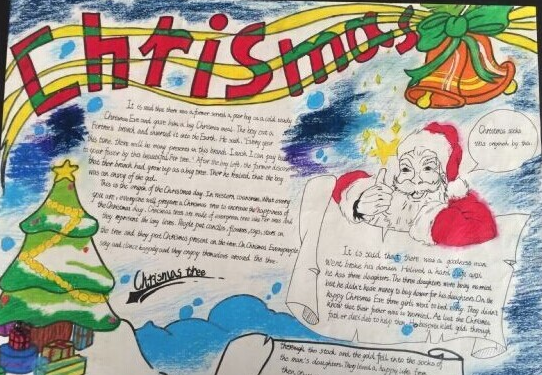 Christmas
It is said that there was a farmer served a poor boy on a cold snowy
Christmas Eve and gave him a big Christmas meal. The boy cut a
branch and inserted it into the Earth. He said, "Every year
this time, there will be many presents in this branch. I wish I can pay back
to your favor by this beautiful Fir tree." After the boy left, the farmer discover
that the branch had grown up as a big tree. Then he realized, that the boy
was an of the god.
This is the origin of the Christmas day. In western countries, what
you are, everyone will prepare a Christmas tree to increase the happiness of
the Christmas day. Christmas tree are made of evergreen tree like
they represent the long lives. People put candles, flowers, toys, stars on
the tree and they put Christmas present on the tree. On Christmas Eve, people
sing and dance happily and they enjoy themselves around the tree.
Christmas tree
Christmas socks
was originate by this.
It is said that there was a goodness man
went broke his domain. He lived a hard but
he has three daughters. The three daughters were being married,
but he didn't have money to buy dower for his daughters. On the
happy Christmas Eve three girls went to bed early. They didn't
know that their father was worried. At last the Christmas
father decided to help them. He gold through
thorough the stack and the gold fall into the socks of
the man's daughters. They lived a happy life from
then on...